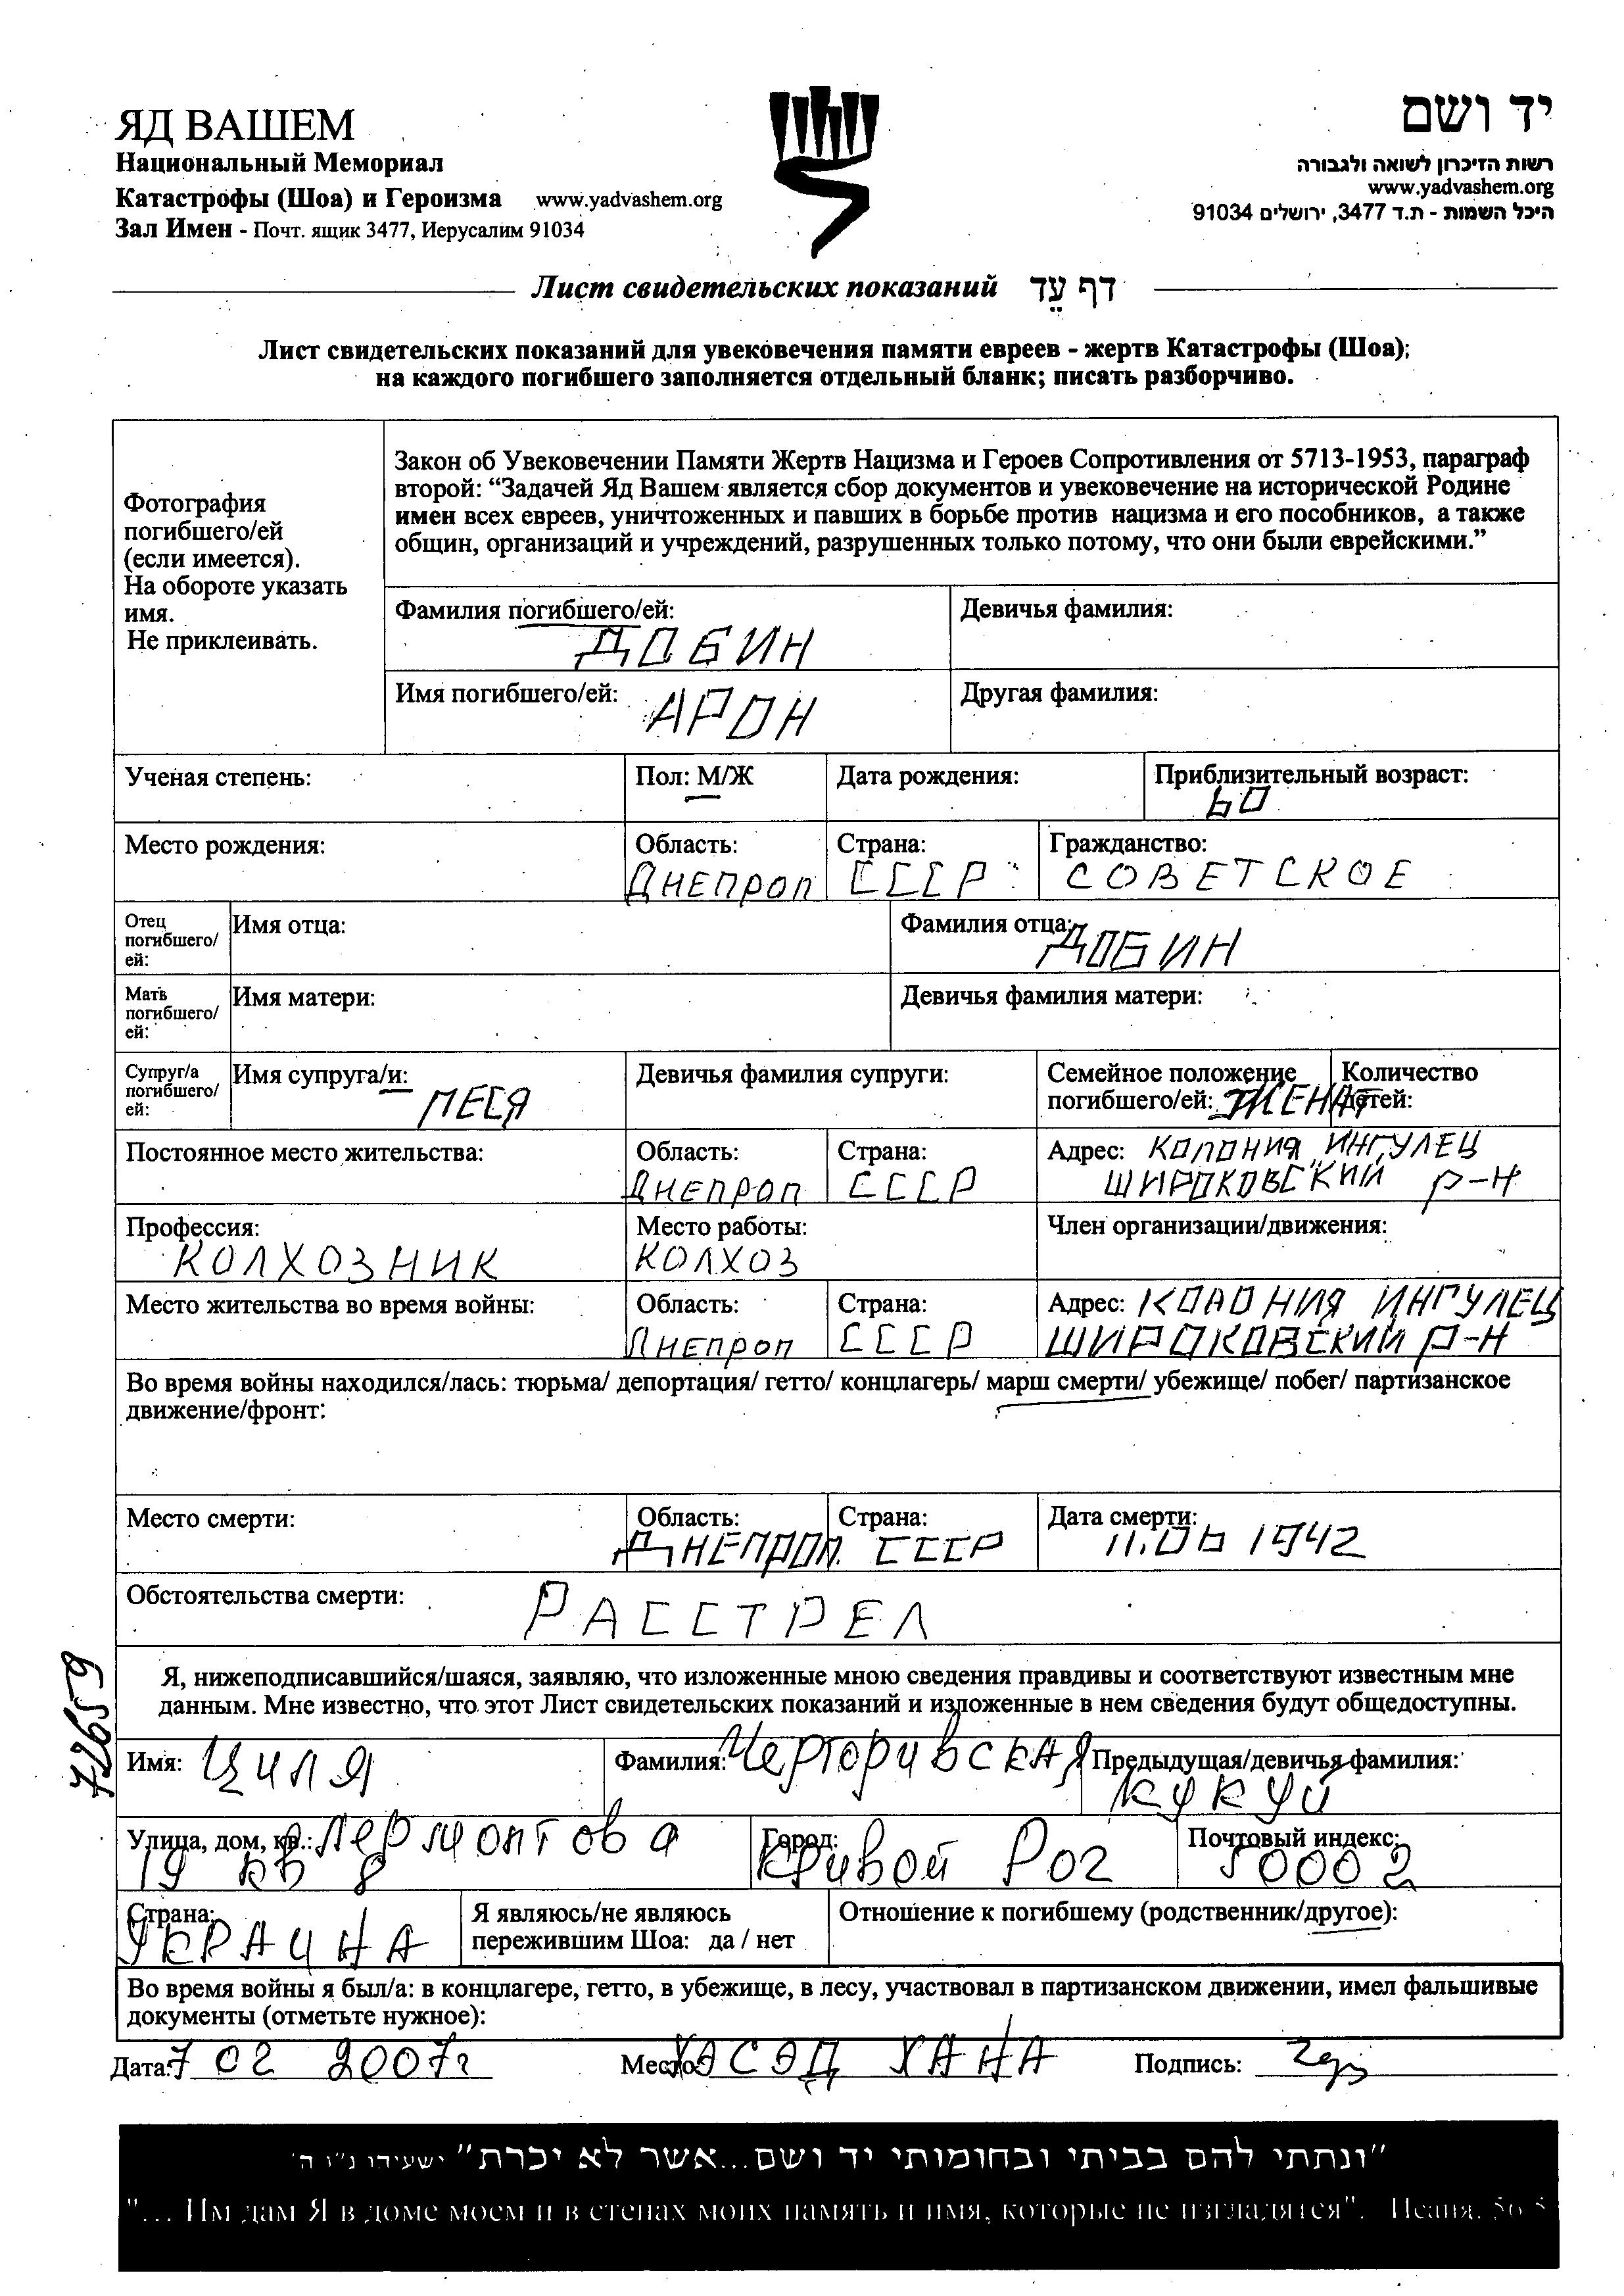 ЯД ВАШЕМ
Национальный Мемориал
Катастрофы (Шоа) и Героизма www.yadvashem.org
Зал Имен - Почт. ящик 3477, Иерусалим 91034
יד ושם
רשות הזיכרון לשואה ולגבורה
www.yadvashem.org
היכל השמות - ת.ד 3477, ירושלים 91034
Лист свидетельских показаний דף עֵד
Лист свидетельских показаний для увековечения памяти евреев - жертв Катастрофы (Шоа);
на каждого погибшего заполняется отдельный бланк; писать разборчиво.
Фотография
погибшего/ей
(если имеется).
На обороте указать
имя.
Не приклеивать.
Закон об Увековечении Памяти Жертв Нацизма и Героев Сопротивления от 5713-1953, параграф
второй: “Задачей Яд Вашем является сбор документов и увековечение на исторической Родине
имен всех евреев, уничтоженных и павших в борьбе против нацизма и его пособников, а также
общин, организаций и учреждений, разрушенных только потому, что они были еврейскими.”
Фамилия погибшего/ей: Девичья фамилия:
ДОБИН
Имя погибшего/ей: АРОН Другая фамилия:
Ученая степень: Пол: М/Ж Дата рождения: Приблизительный возраст:
60
Место рождения: Область: Страна: Гражданство:
ДНЕПРОП СССР СОВЕТСКОЕ
Отец
погибшего/
ей:
Имя отца: Фамилия отца:
ДОБИН
Мать
погибшего/
ей:
Имя матери: Девичья фамилия матери:
Супруг/а
погибшего/
ей:
Имя супруга/и: ПЕСЯ
Девичья фамилия супруги:
Семейное положение
погибшего/ей: ЖЕНАТ
Количество
детей:
Постоянное место жительства: Область: Страна: Адрес: КОЛОНИЯ ИНГУЛЕЦ
ДНЕПРОП СССР ШИРОКОВСКИЙ Р-Н
Профессия: Место работы: Член организации/движения:
КОЛХОЗНИК КОЛХОЗ
Место жительства во время войны: Область: Страна: Адрес: КОЛОНИЯ ИНГУЛЕЦ
ДНЕПРОП СССР ШИРОКОВСКИЙ Р-Н
Во время войны находился/лась: тюрьма/ депортация/ гетто/ концлагерь/ марш смерти/ убежище/ побег/ партизанское
движение/фронт:
Место смерти: Область: Страна: Дата смерти:
ДНЕПРОП. СССР 11.06 1942
Обстоятельства смерти: РАССТРЕЛ
72659
Я, нижеподписавшийся/шаяся, заявляю, что изложенные мною сведения правдивы и соответствуют известным мне
данным. Мне известно, что этот Лист свидетельских показаний и изложенные в нем сведения будут общедоступны.
Имя: Циля Фамилия: Черторивская Предыдущая/девичья фамилия:
Кукуй
Улица, дом, кв.: Лермонтова Город: Почтовый индекс:
19 кв 8 Кривой Рог 50002
Страна:
УКРАИНА
Я являюсь/не являюсь
пережившим Шоа: да / нет
Отношение к погибшему (родственник/другое):
Во время войны я был/а: в концлагере, гетто, в убежище, в лесу, участвовал в партизанском движении, имел фальшивые
документы (отметьте нужное):
Дата: 7 02 2007г Место: ХЭСЭД ХАНА Подпись:
"ונתתי להם בביתי ובחומותי יד ושם...אשר לא יכרת" ישעיהו נ"ו ה'
"... Им дам Я в доме моем и в стенах моих память и имя, которые не изгладятся". Исаия. 56 5